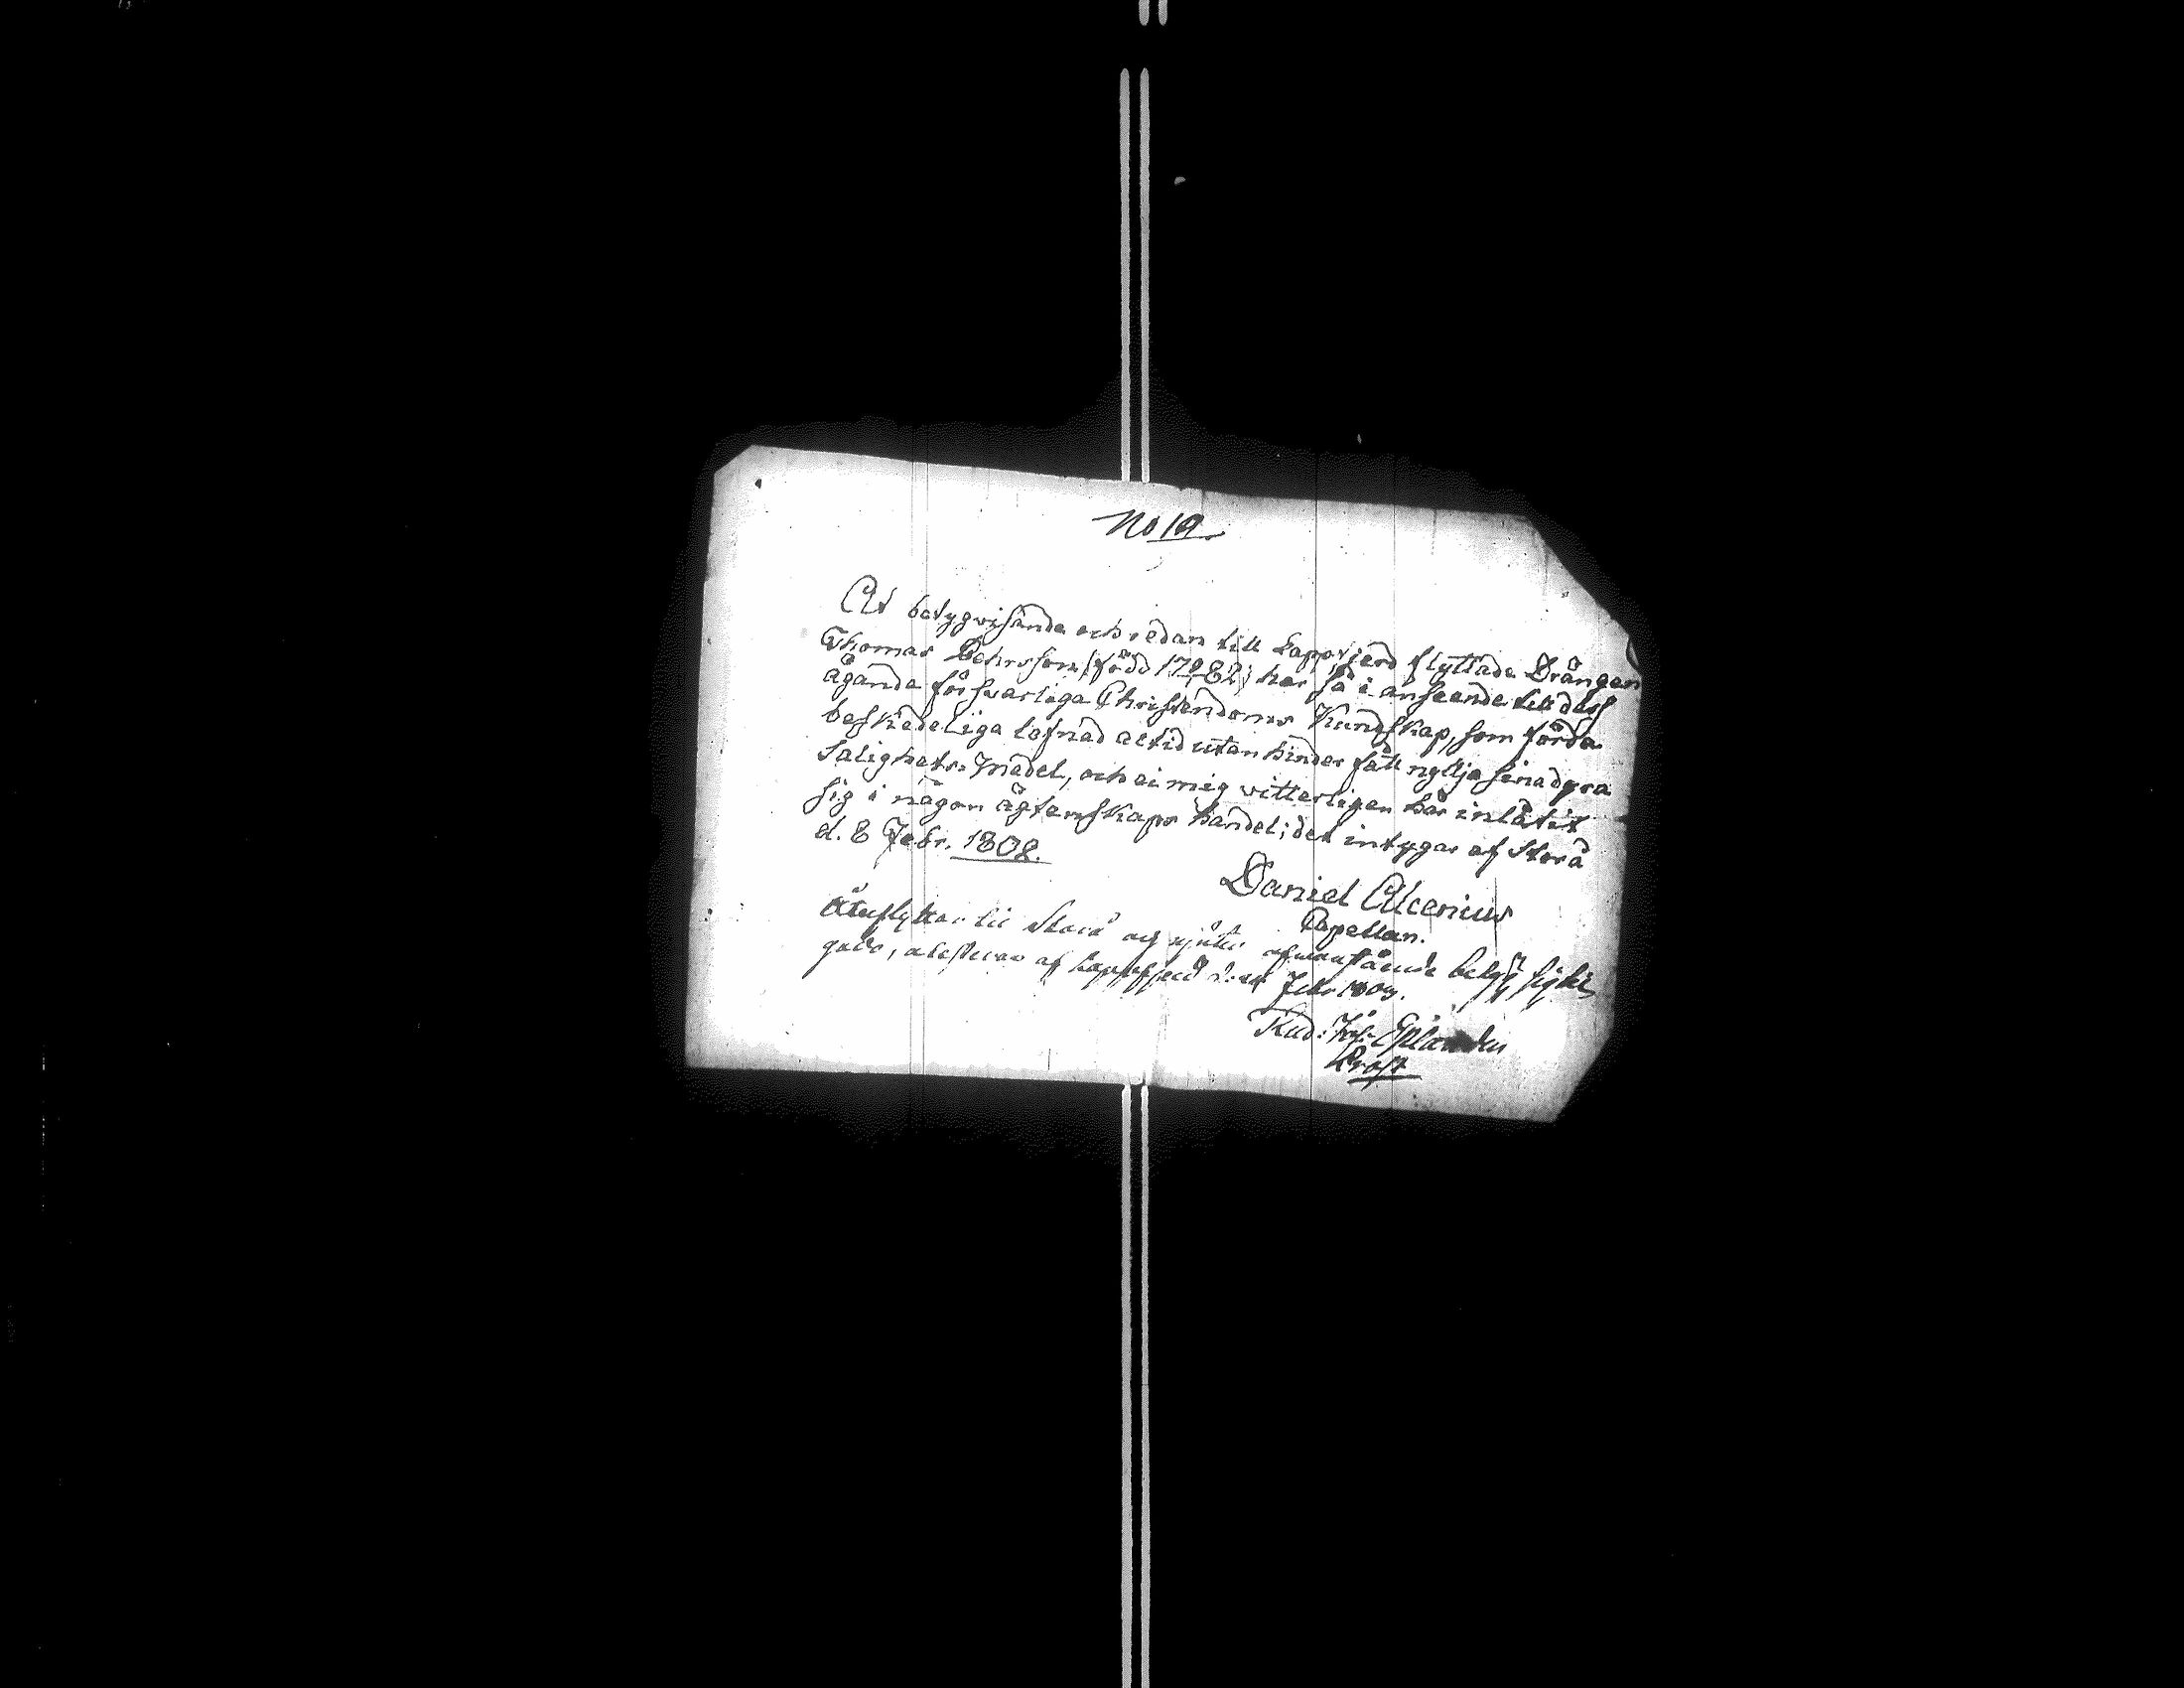 No 19
At betygvisande och redan till Lappfjerd flyttade Drängen
Thomas Behrsson (född 1782) har så i anseende till dess
ägande försvarliga Christendoms Kundskap, som förda
beskedeliga lefnad altid utan hinder fått nyttja sina dyra
Salighets-Medel, och ei mig vitterligen har inlåtit
sig i någon ägtenskaps handel; det intygar af Storå
d. 8 Febr. 1808.
Daniel Alcenius
Capellan.
Återflyttar til Storå och njuter ofwanstående betyg sig til
godo, attesteras af Lappfjerd d. Febr 1809.
Gab: Joh: Eplander
Prost